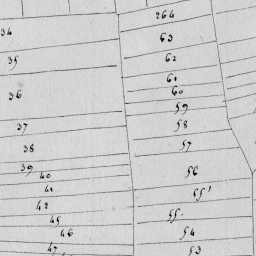 34
35
36
37
38
39
40
41
42
45
46
47
264
63
62
61
60
59
58
57
56
55'
55
54
53